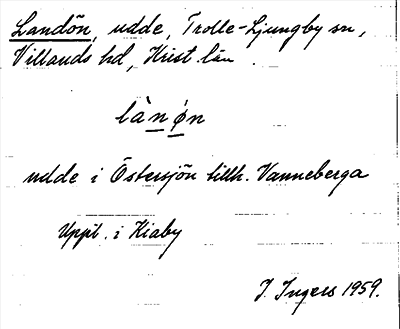 Landön, udde, Trolle-Ljungby sn,
Villands hd, Krist. län.
lànøn
udde i Östersjön tillh. Vanneberga
Uppt. i Kiaby
J. Ingers 1959.